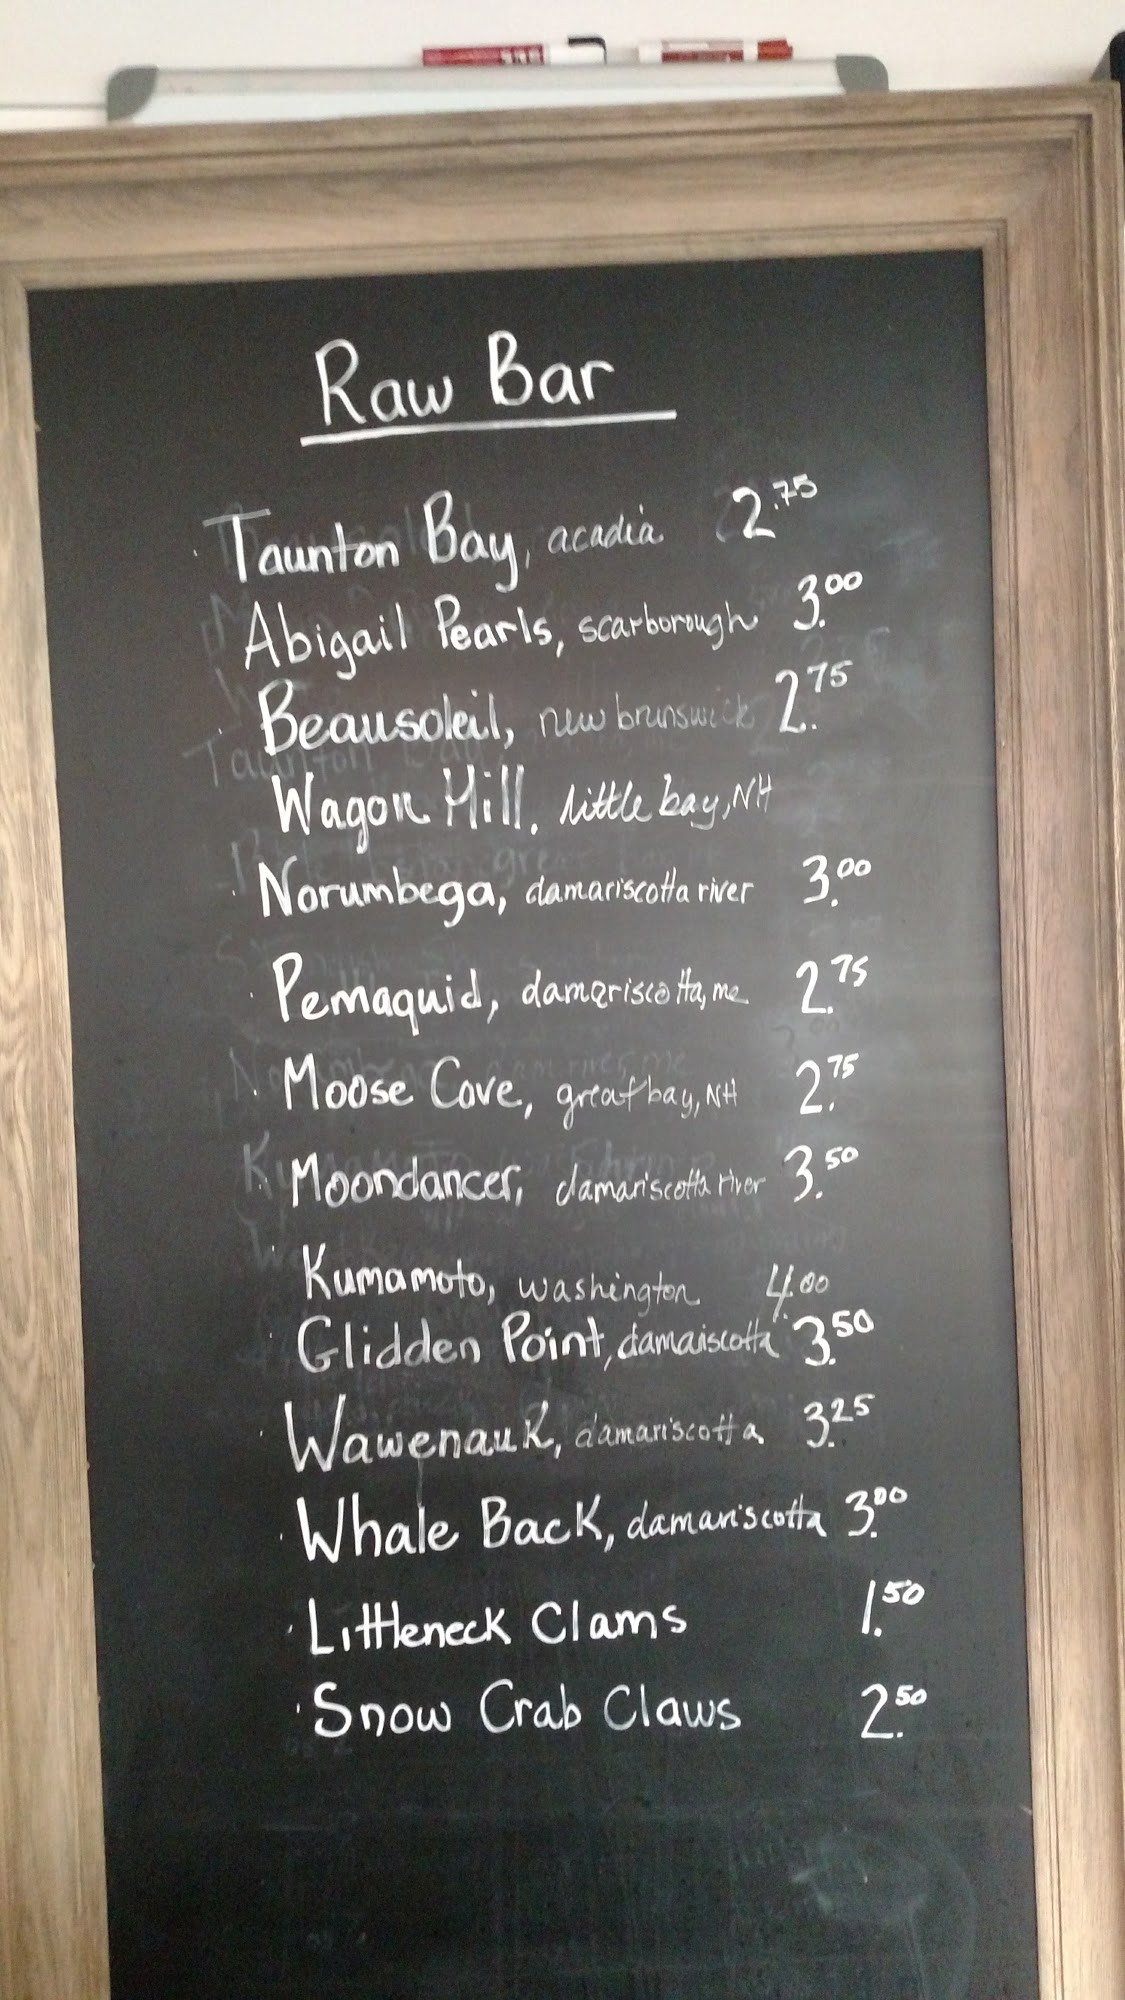 Raw Bar
Taunton Bay, acadia 2.75
Abigail Pearls, scarborough 3.00
Beausoleil, new brunswick 2.75
Wagon Hill, little bay, NH
Norumbega, damariscotta river 3.00
Pemaquid, damariscotta, me 2.75
Moose Cove, great bay, NH 2.75
Moondancer, damariscotta river 3.50
Kumamoto, washington 4.00
Glidden Point, damaiscotta 3.50
Wawenauk, damariscotta 3.25
Whale Back, damariscotta 3.00
Littleneck Clams 1.50
Snow Crab Claws 2.50